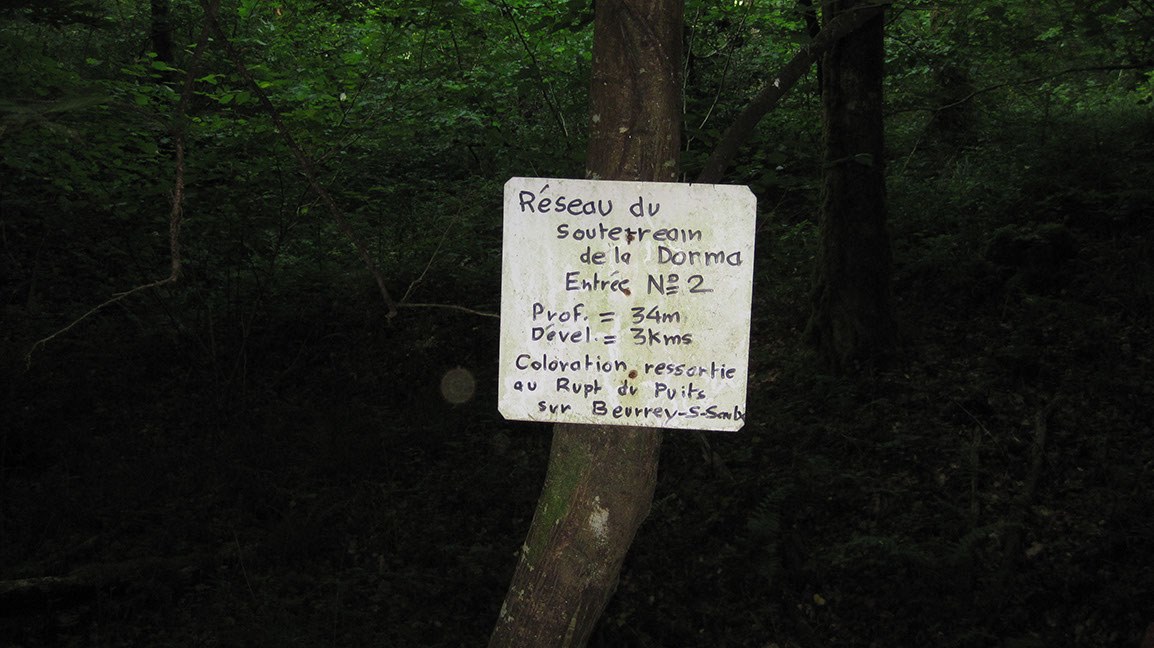 Réseau du
souterreain
de la Dorma
Entrée Nº 2
Prof. = 34m
Dével. = 3kms
Coloration ressortie
au Rupt du Puits
sur Beurrey-S-Saulx